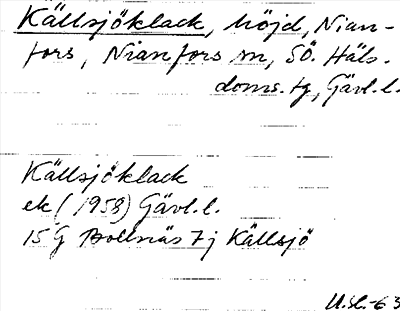 Källsjöklack, höjd, Nian-
fors, Nianfors sn, SÖ. Häls.
doms. tg, Gävl. l.
Källsjöklack
ek (1958) Gävl. l.
15 G Bollnäs 7 j Källsjö
U.sl.-63